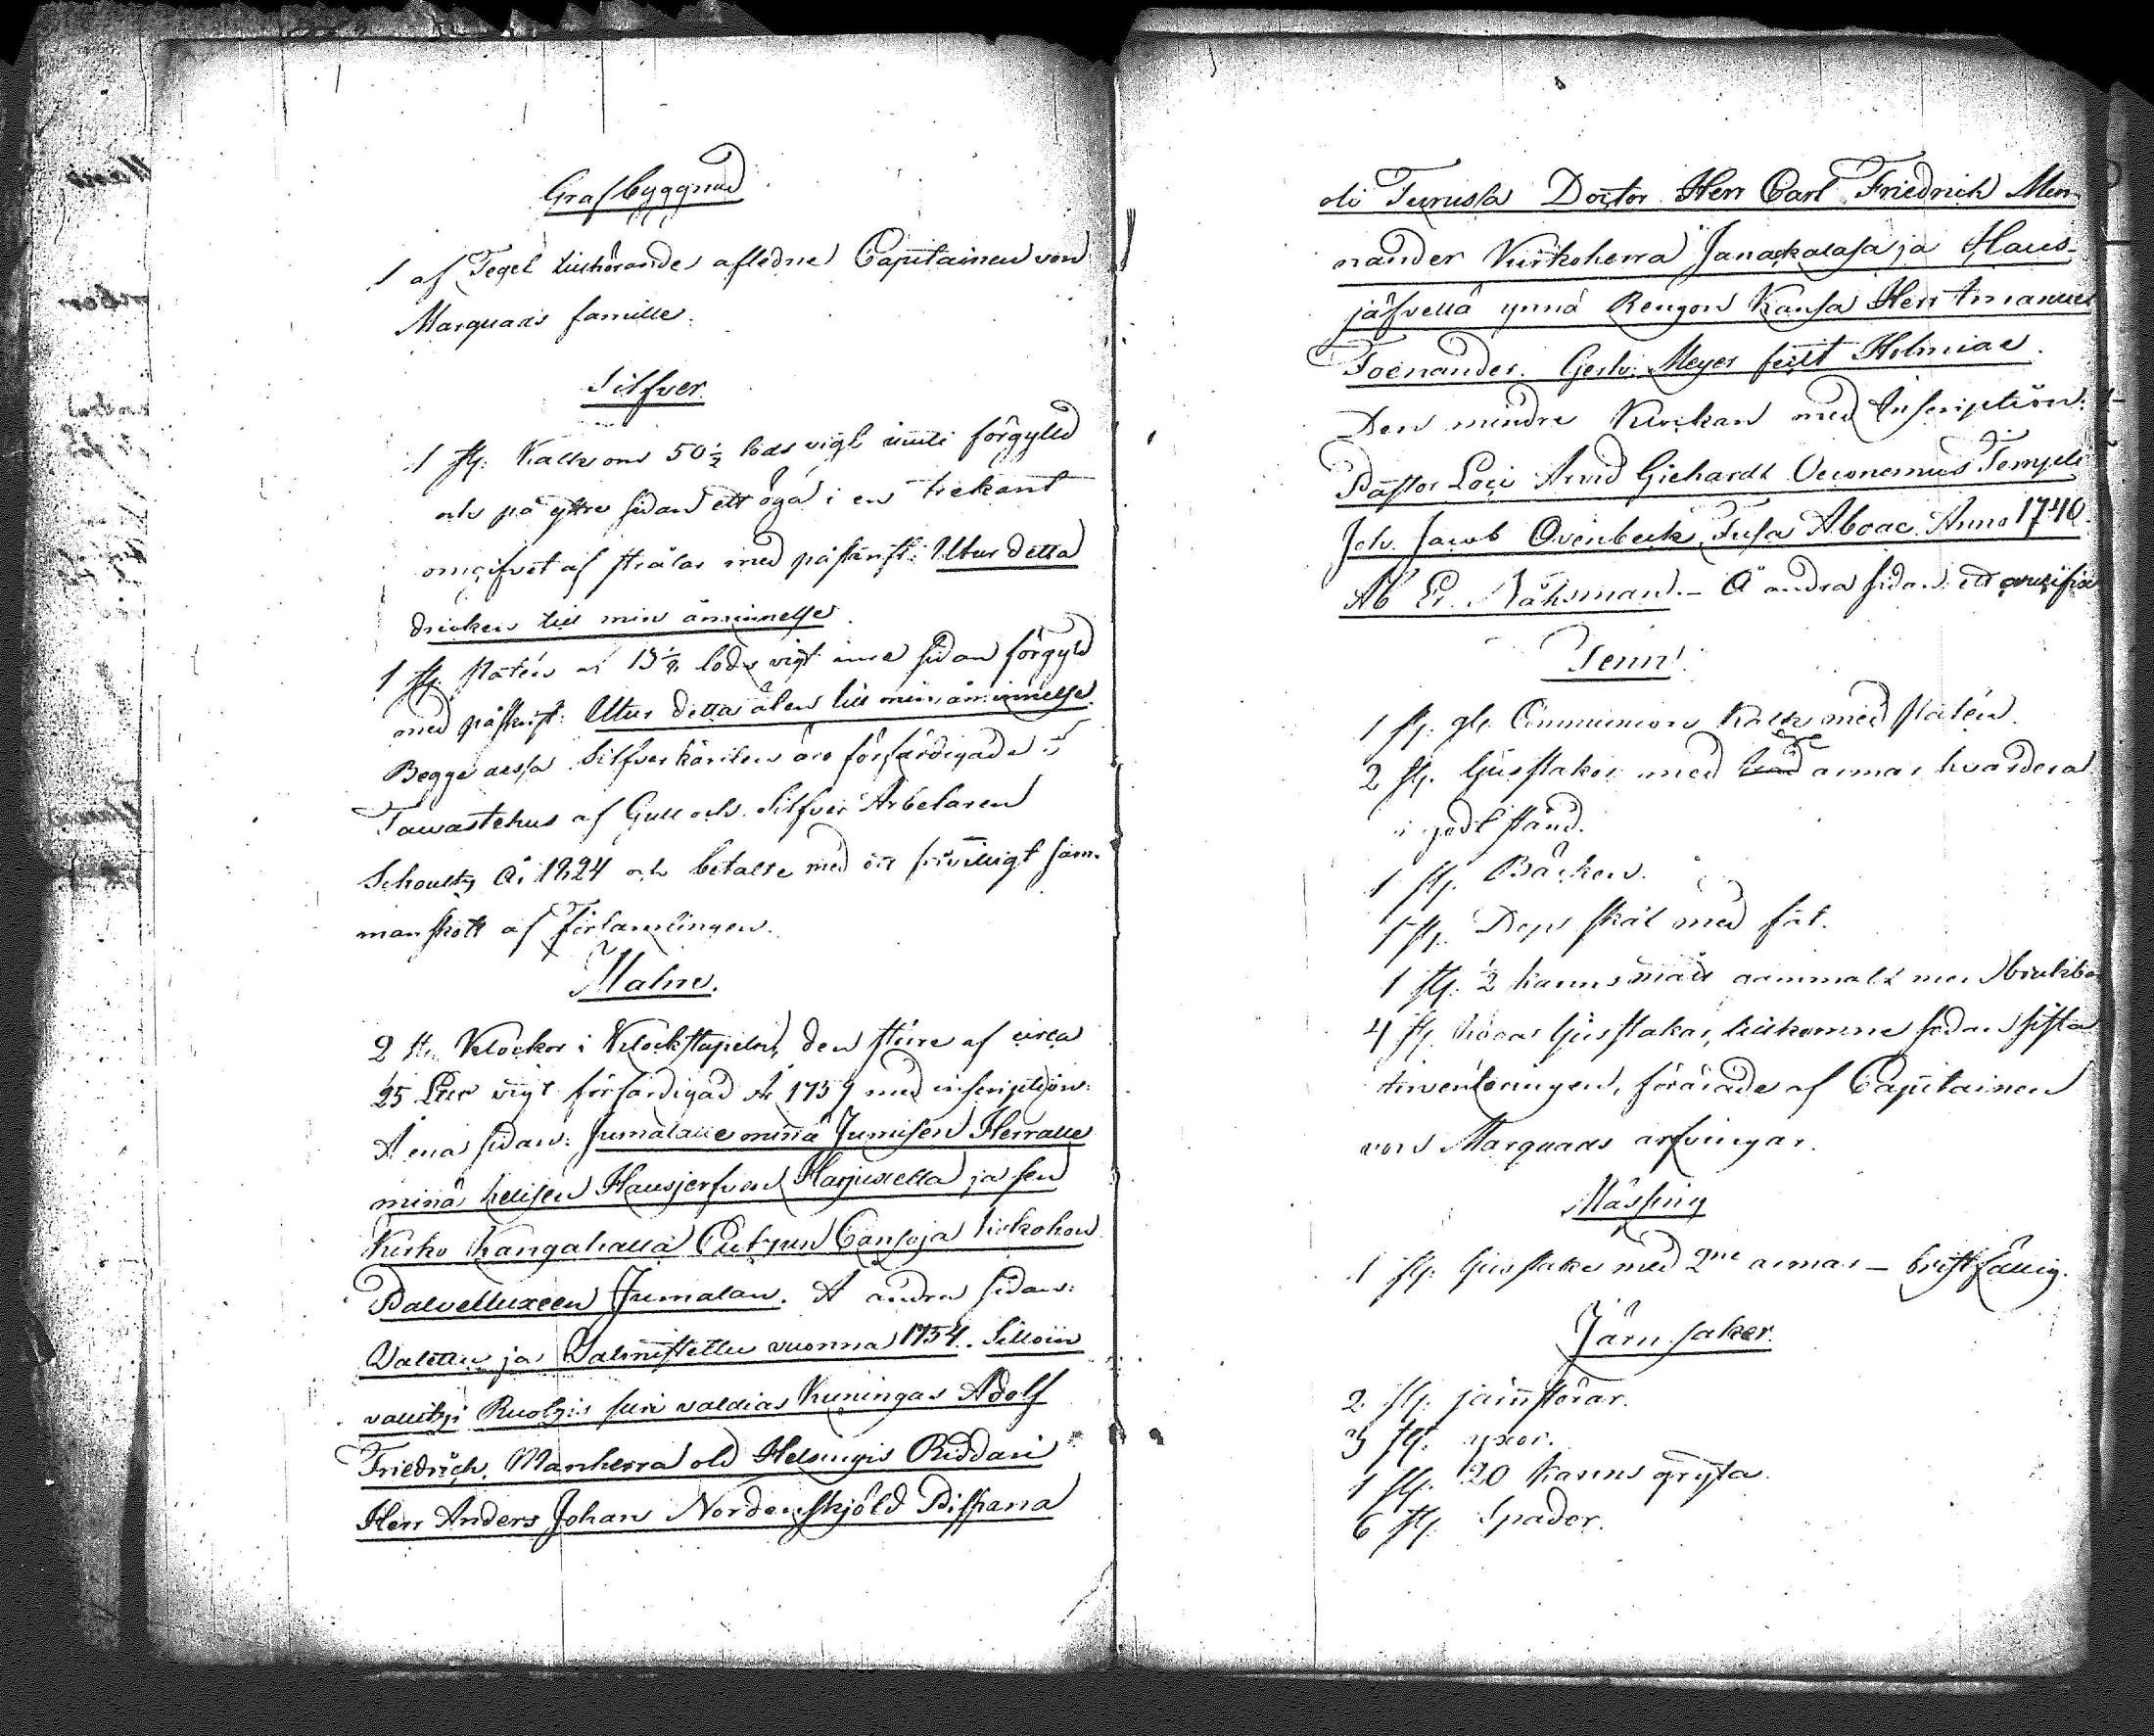 Grafbyggnad
1 af Tegel tillhörande afledne Capitainen von
Marquads famille.
Silfver.
1 st. Kalk om 50 1/2 lods vigt inuti förgylld
och på yttre sidan ett öga i en trekant
omgifvet af strålar med påskrift: Utur detta
dricken till min åminnelse.
1 st. Patén 13 1/2 lods vigt inra sidan förgyld
med påskrift: Utur detta äten till min åminnelse.
Begge dessa Silfverkärilen äro förfärdigade i
Tawastehus af Gull och Silfver Arbetaren
Schoultz År 1824 och betalte med ett frivilligt sam-
manskott af Församlingen.
Malm.
2 st. Klockor i Klockstapeln, den större af circa
25 vigt förfärdigad År 1754 med inscription:
Å ena sidan: Jumalalle minä Jumisen Herralle
minä helisen Hausjerfven Harjuxella ja sen
Kirko Kangahalla Cutzun Cansoja kirkohon
Palvelluxeen Jumalan. Å andra sidan:
Valettu ja Valmistettu vuonna 1754. Silloin
vallitzi Ruotzis suri valdias Kuningas Adolf
Friedrich. Manherra oli Helsingis Riddari
Herr Anders Johan Nordenskjöld Pispana
oli Turusa Doctor Herr Carl Friedrich Men-
nander Kirkoherra Janackalasa ja Haus-
järfvellä ynnä Rengon Kansa Herr Emanuel
Poenander. Gerh. Meyer fecit Holmiae.
Den mindre Klockan med Inscription:
Pastor Loci Arvid Gichardt Oeconomus Templi
Joh. Jacob Ovenbeck, Fusa Aboae Anno 1740.
Ab Er. Näksman. – Å andra sidan ett crucifix
Tenn.
1 st. gl. Communion Kalk med Patén.
2 st. Ljusstakar med tre armar hvardera
i godt stånd.
1 st. Bäcken.
1 st. Dops skål med fat.
1 st. 1/2 kanns mått gammalt men brukba
4 st. Ljusstakar, tillkomne sedan sista
Inventeringen, förärade af Capitainen
von Marquads arfvingar.
Mässing
1 st. Ljusstake med 2ne armar – bristfällig.
Järn saker.
2 st. järnstörar.
3 st. yxor.
1 st. 20 kanns gryta.
6 st. Spador.